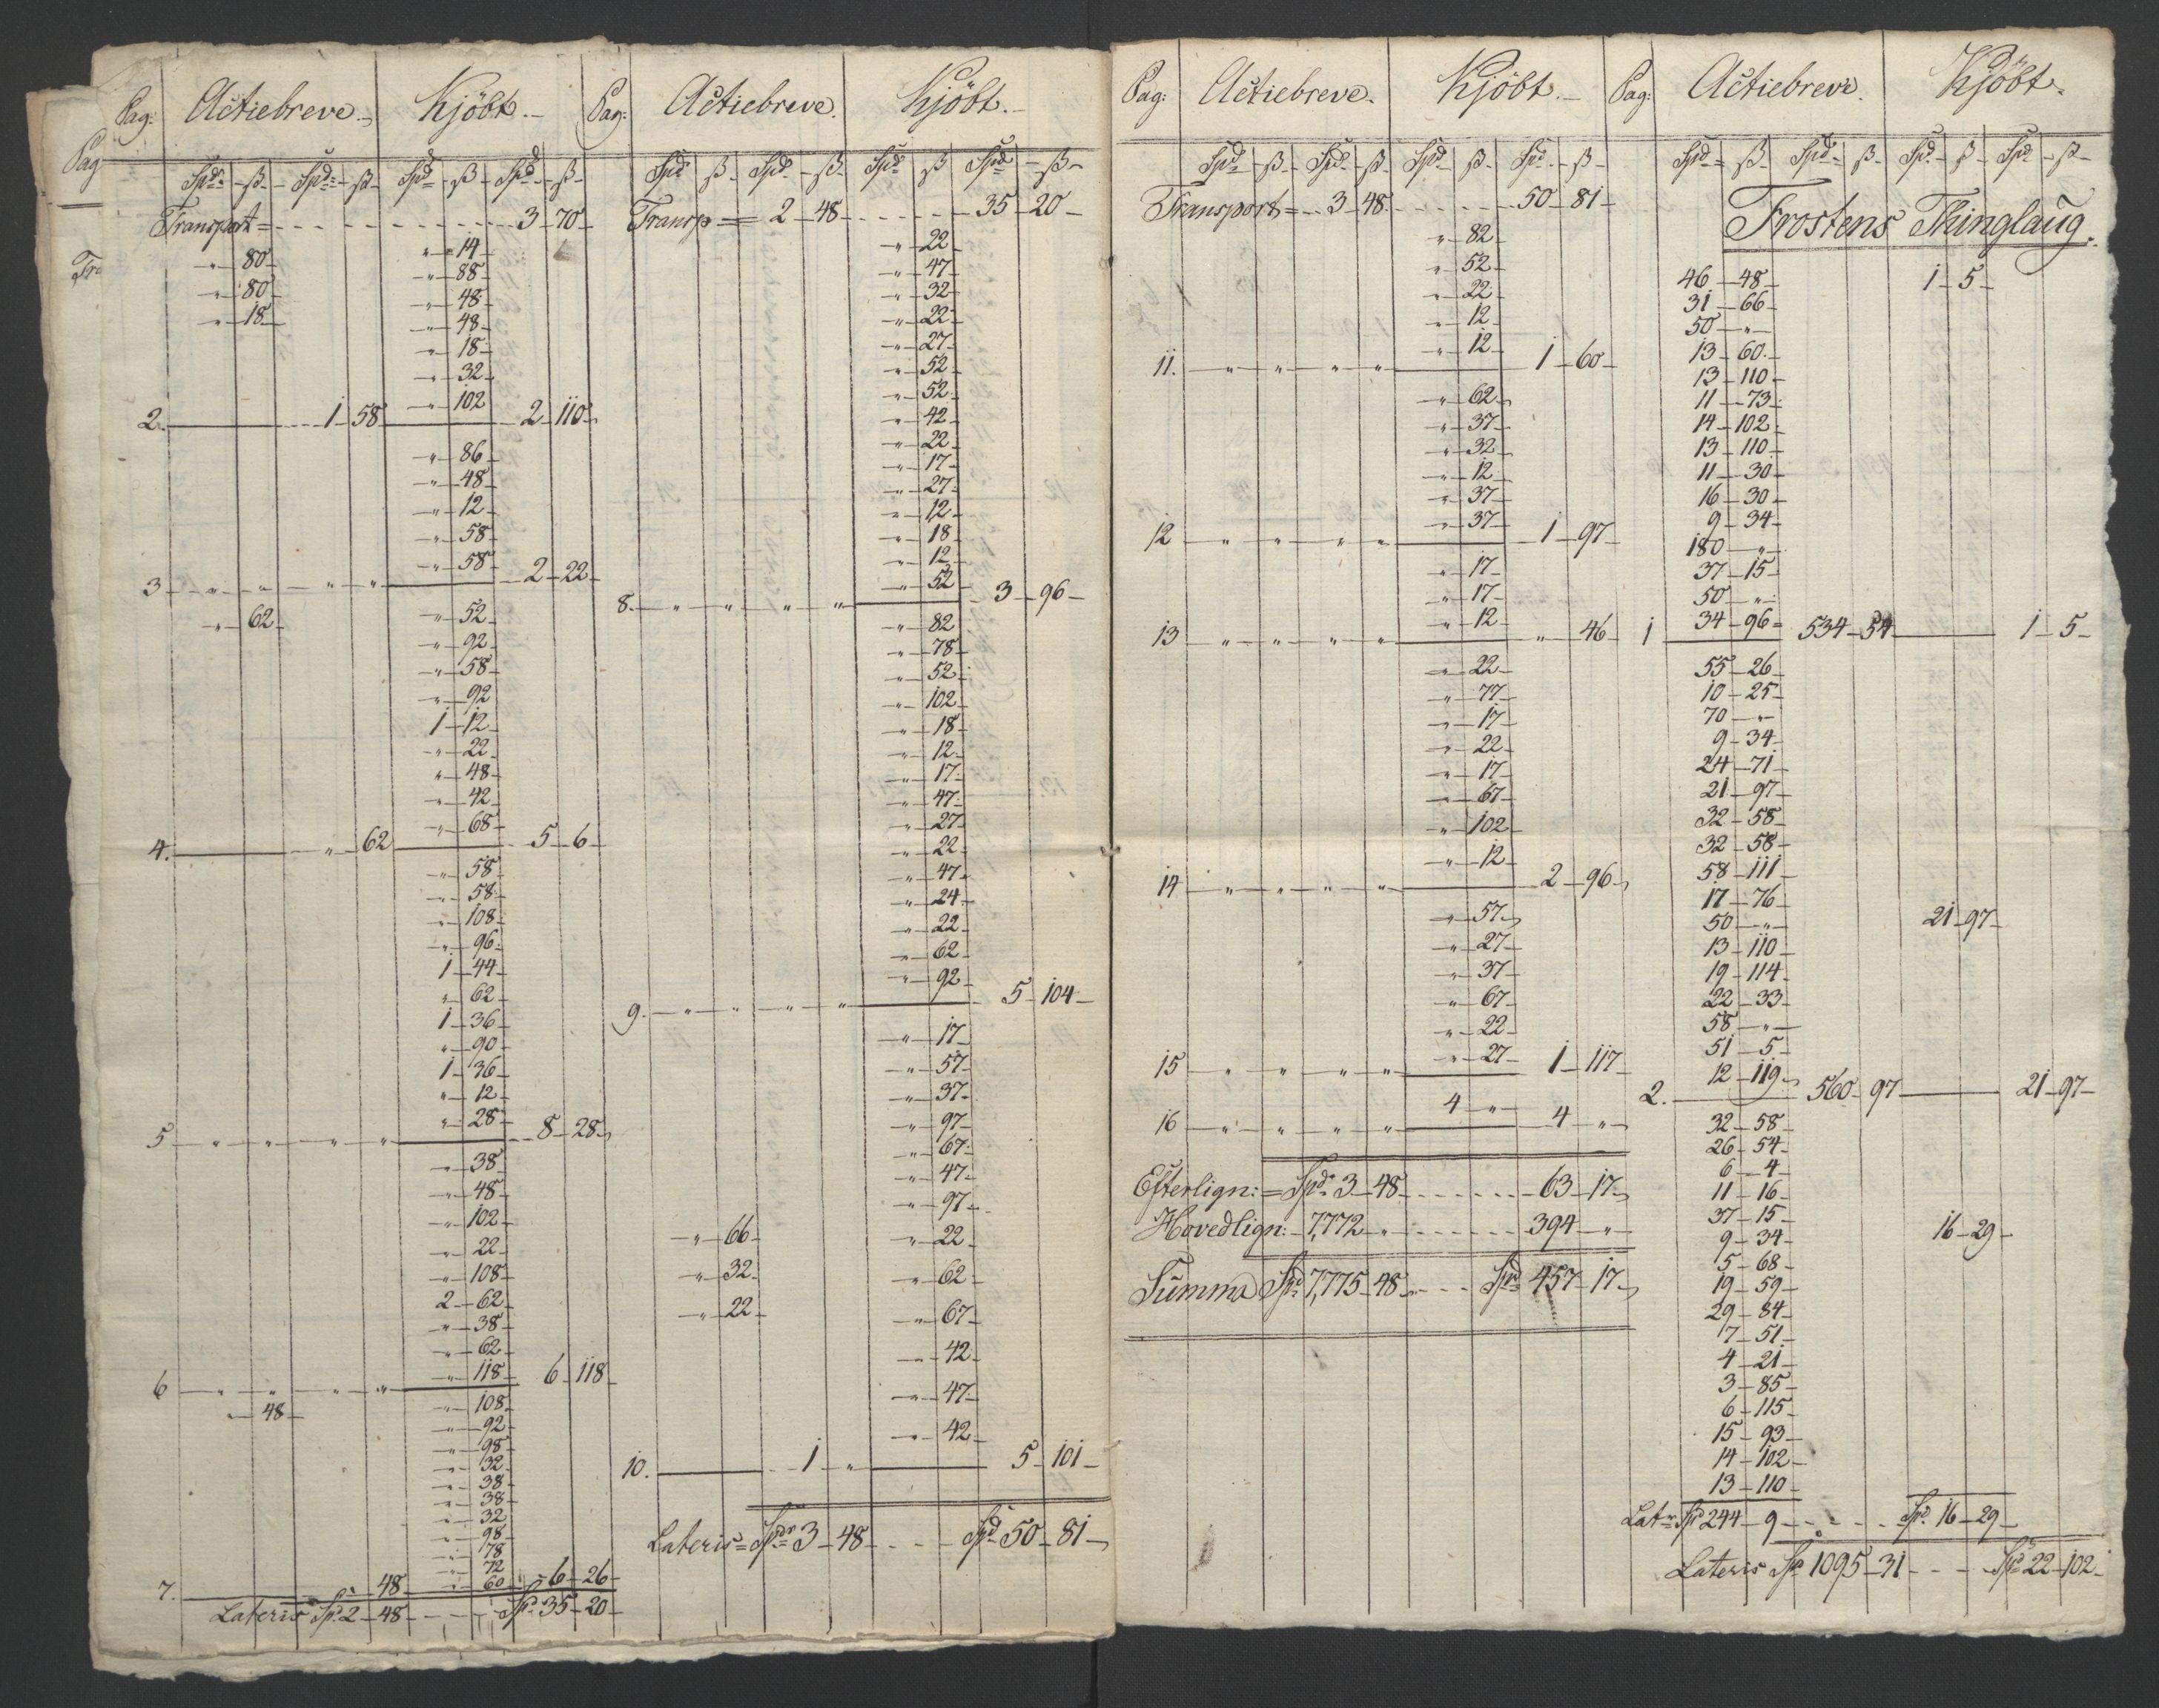 Pag: Actiebreve. Kjöbt.
Pag
Spd ß Spd ß Spd ß Spd ß
Transport 3 70
Tr
" 80 " 14
" 80 " 88
" 18 " 48
" 48
" 18
" 32
" 102
2. 1 58 2 110
" 86
" 48
" 12
" 58
" 58
3 " " " " 2 22
" 62 " 52
" 92
" 58
" 92
1 12
" 22
" 48
" 42
" 68
4. " 62 5 6
" 58
" 58
" 108
" 96
1 44
" 62
1 36
" 90
1 36
" 12
" 28
5 " " " " 8 28
" 38
" 48
" 102
" 22
" 108
2 62
" 38
" 62
" 118
6 " " " " 6 118
" 48 " 108
" 92
" 98
" 32
" 38
" 38
" 32
" 98
" 78
" 72
" 60
7. 48 6 26
Lateris Spd 2 48 Spd 35 20
Pag: Actiebreve. Kjöbt.
Spd ß Spd ß Spd ß Spd ß
Transp 2 48 35 20
" 22
" 47
" 32
" 22
" 27
" 52
" 52
" 42
" 22
" 17
" 27
" 12
" 18
" 12
" 52
8. " " " " 3 96
" 82
" 78
" 52
" 102
" 18
" 12
" 17
" 47
" 27
" 22
" 47
" 24
" 22
" 62
" 92
9. " " " " 5 104
" 17
" 57
" 37
" 97
" 67
" 47
" 97
" 66 " 22
" 32 " 62
" 22 " 67
" 42
" 47
" 42
10. 1 " 5 101
Lateris Spd 3 48 Spd 50 81
Pag: Actiebreve. Kjöbt.
Spd ß Spd ß Spd ß Spd ß
Transport 3 48 50 81
" 82
" 52
" 22
" 12
" 12
11. " " " " 1 60
" 62
" 37
" 32
" 12
" 37
" 37
12 " " " " 1 97
" 17
" 17
" 12
13 " " " " " 46
" 22
" 77
" 17
" 22
" 17
" 67
" 102
" 12
14 " " " " 2 96
" 57
" 27
" 37
" 67
" 22
" 27
15 " " " " 1 117
4 "
16 " " " " 4 "
Efterlign: Spd 3 48 63 17
Hovedlign: 7,772 " 394 "
Summa Spd 7,775 48 Spd 457 17
Pag: Actiebreve. Kjöbt.
Spd ß Spd ß Spd ß Spd ß
Frostens Thinglaug.
46 48 1 5
31 66
50 "
13 60
13 110
11 73
14 102
13 110
11 30
16 30
9 34
180 "
37 15
50 "
34 96
1 534 54 1 5
55 26
10 25
70 "
9 34
24 71
21 97
32 58
32 58
58 111
17 76
50 " 21 97
13 110
19 114
22 33
58 "
51 5
12 119
2. 560 97 21 97
32 58
26 54
6 4
11 16
37 15
9 34 16 29
5 68
19 59
29 84
7 51
4 21
3 85
6 115
15 93
14 102
13 110
Lat Spd 244 9 Spd 16 29
Lateris Spd 1095 31 Spd 22 102